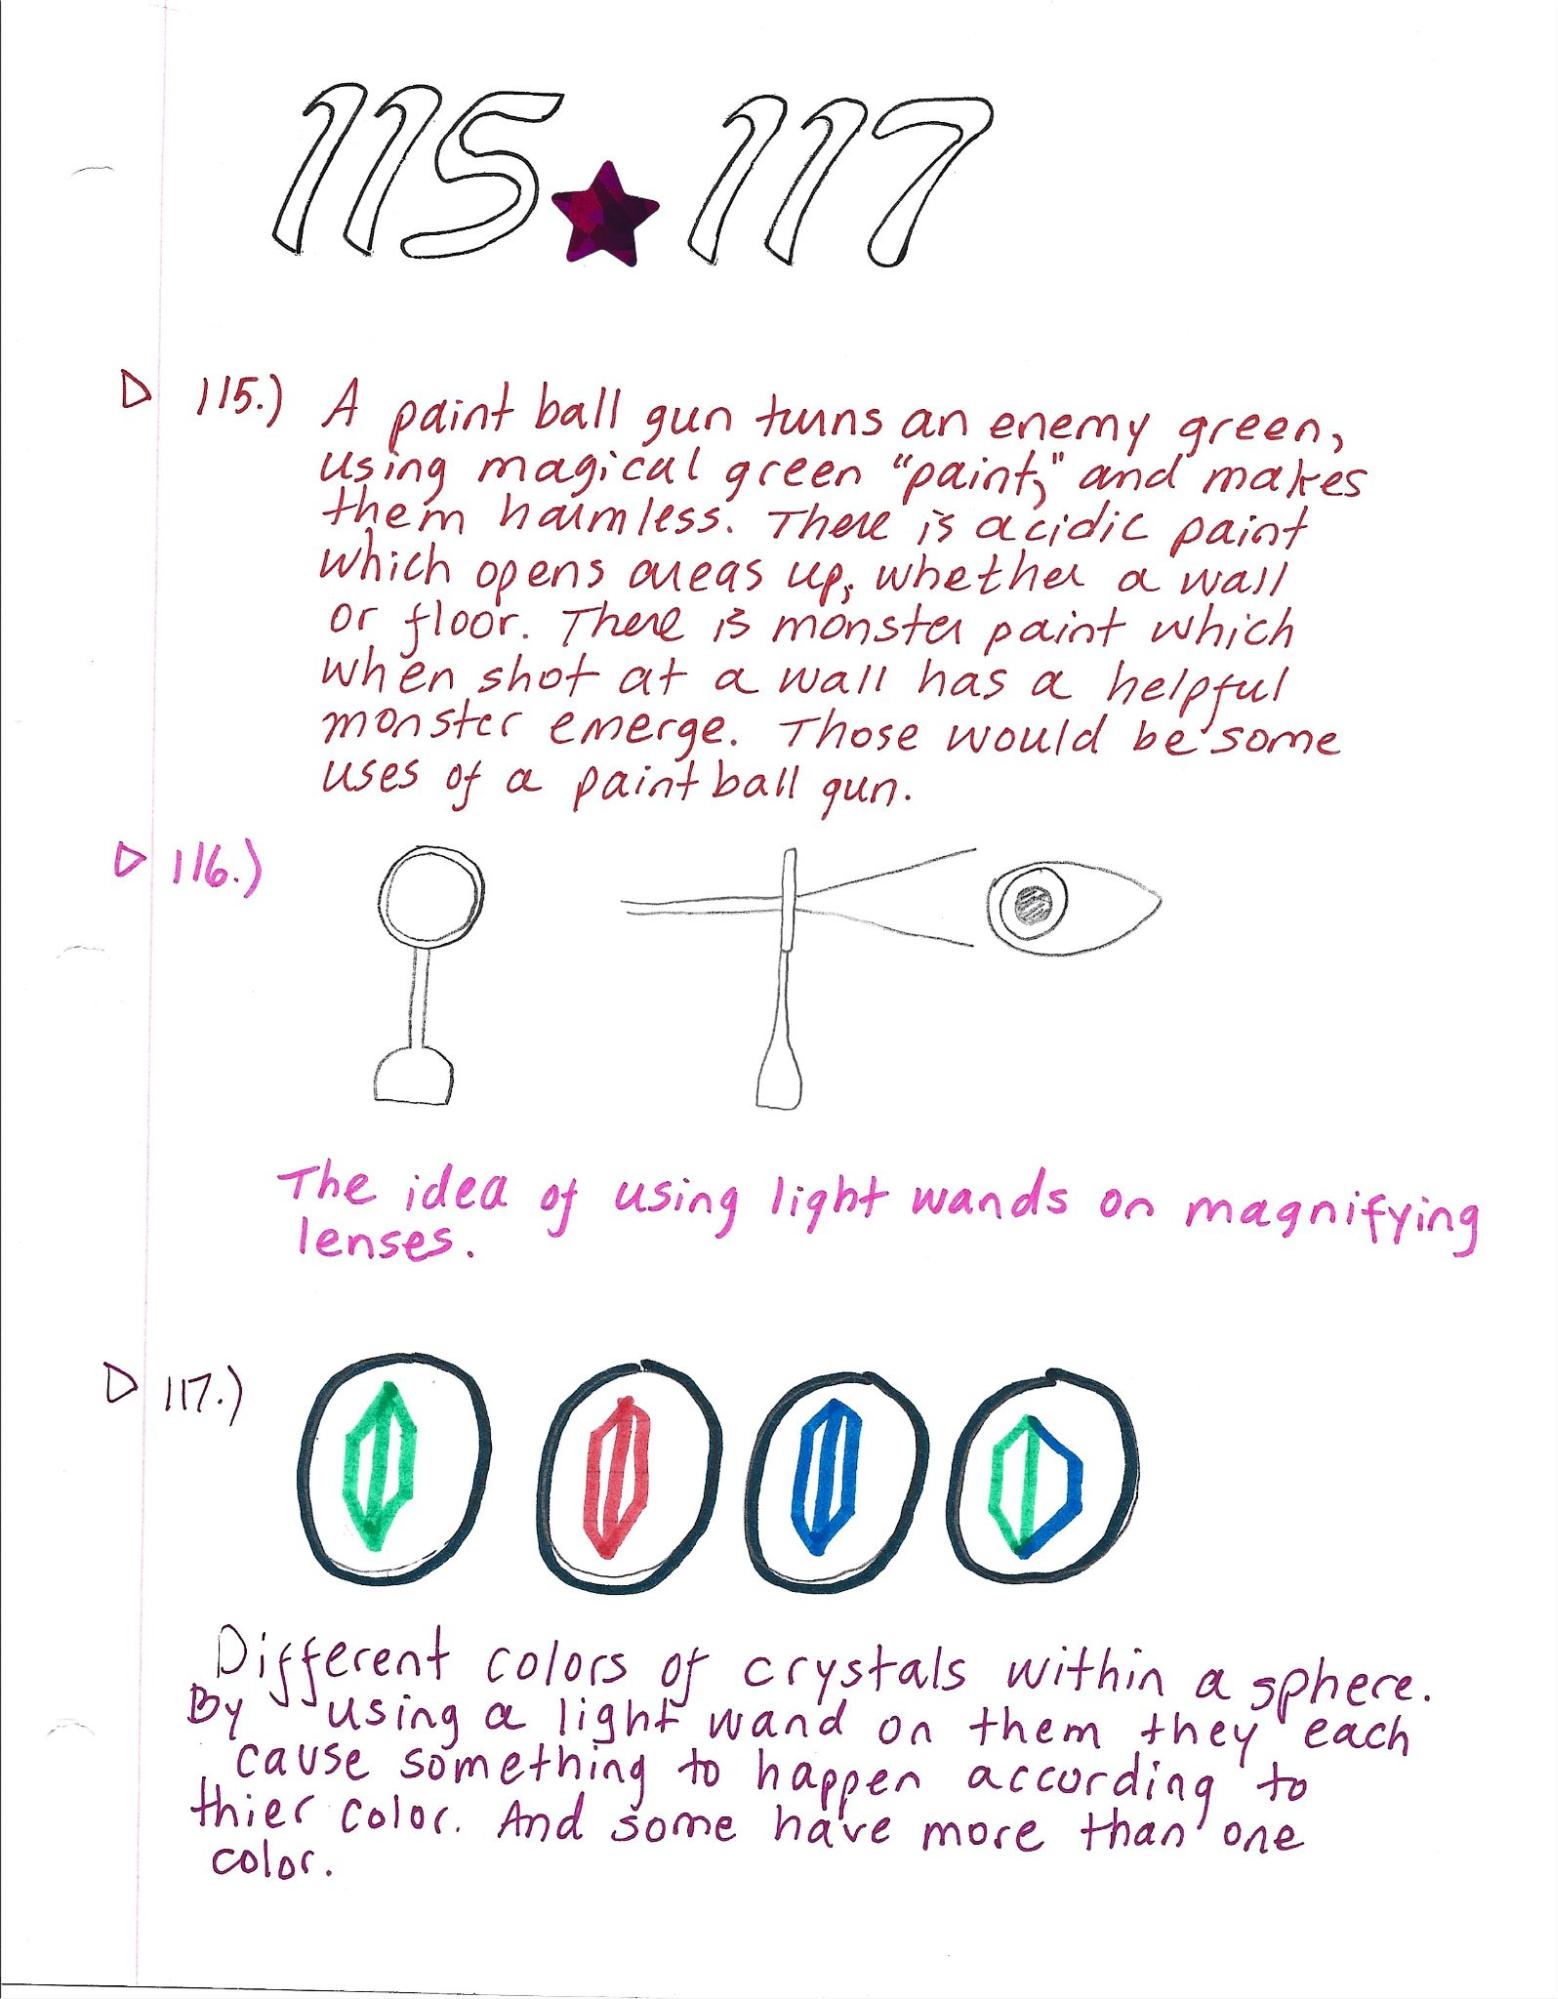 115 117
115.) A paint ball gun turns an enemy green,
using magical green "paint," and makes
them harmless. There is acidic paint
which opens areas up, whether a wall
or floor. There is monster paint which
when shot at a wall has a helpful
monster emerge. Those would be some
uses of a paint ball gun.
116.)
The idea of using light wands on magnifying
lenses.
117.)
Different colors of crystals within a sphere.
By using a light wand on them they each
cause something to happen according to
thier color. And some have more than one
color.